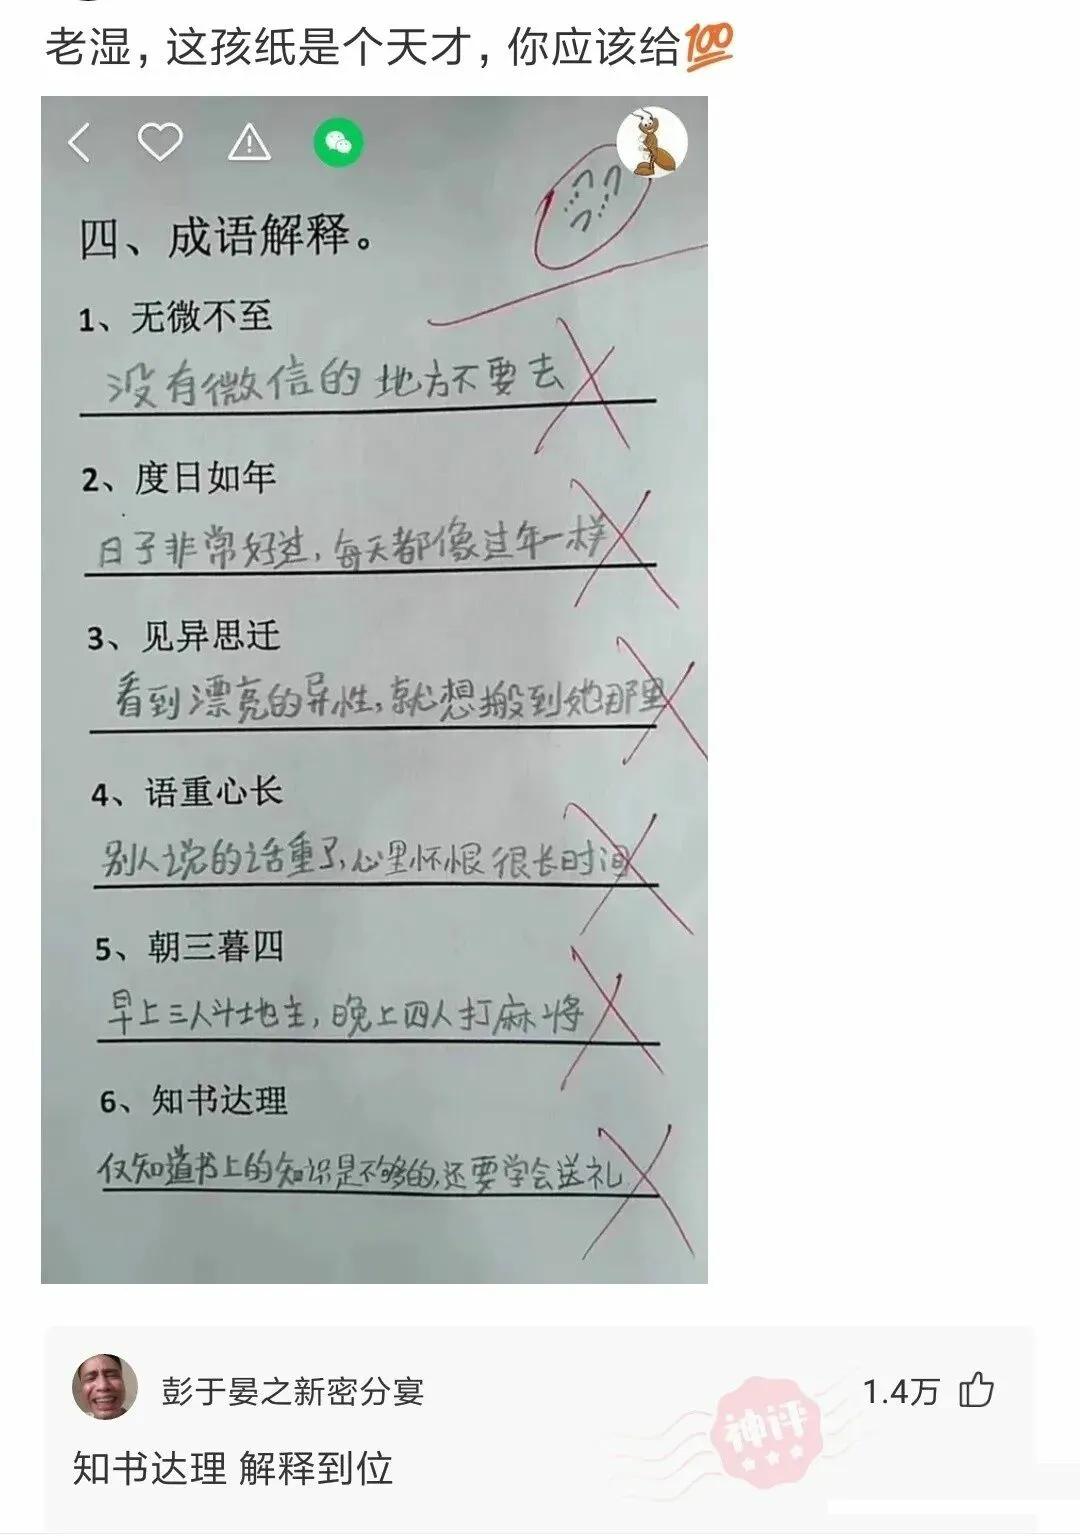 老湿，这孩纸是个天才，你应该给💯
四、成语解释。
1、无微不至
没有微信的地方不要去
2、度日如年
日子非常好过，每天都像过年一样
3、见异思迁
看到漂亮的异性，就想搬到她那里
4、语重心长
别人说的话重了，心里怀恨很长时间
5、朝三暮四
早上三人斗地主，晚上四人打麻将
6、知书达理
仅知道书上的知识是不够的，还要学会送礼
彭于晏之新密分宴
1.4万
神评
知书达理 解释到位